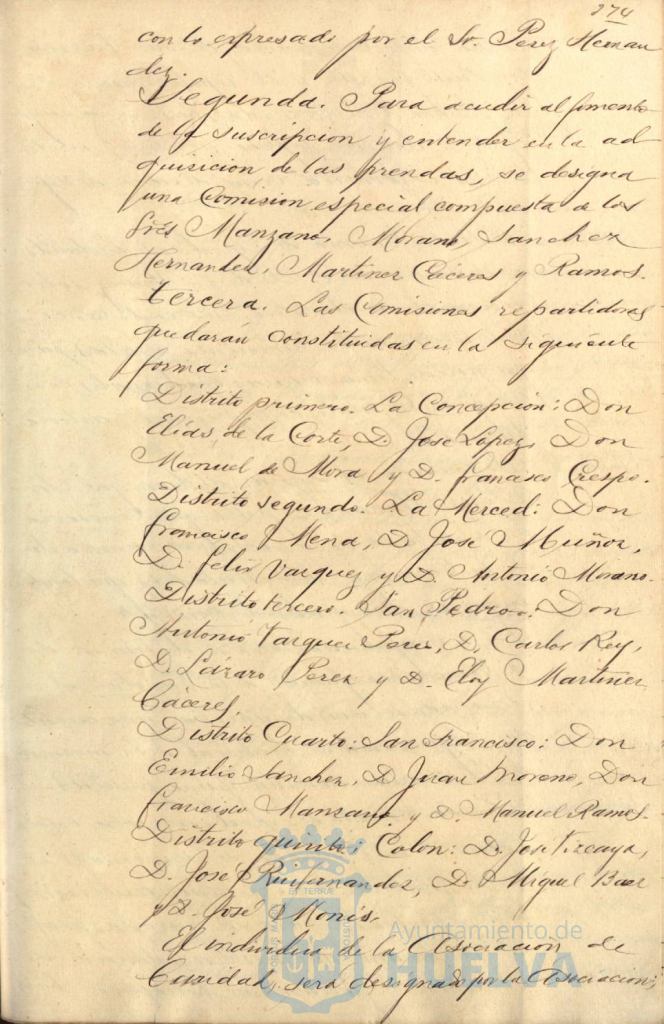 274
con lo expresado por el Sr. Perez Hernan
dez.
Segunda. Para acudir al fomento
de la suscripcion y entender en la ad
quisicion de las prendas, se designa
una Comision especial compuesta de los
Sres Manzano, Morano, Sanchez
Hernandez, Martinez Cáceres y Ramos.
Tercera. Las Comisiones repartidoras
quedarán constituidas en la siguiente
forma:
Distrito primero. La Concepcion: Don
Elías de la Corte, D. Jose Lopez, Don
Manuel de Mora y D. Francisco Crespo.
Distrito segundo. La Merced: Don
Francisco Mena, D José Muñoz,
D. Felix Vazquez y D. Antonio Morano.
Distrito tercero. San Pedro: Don
Antonio Vazquez Perez, D. Carlos Rey,
D. Lázaro Perez y D. Eloy Martinez
Cáceres.
Distrito Cuarto: San Francisco: Don
Emilio Sanchez, D Juan Moreno, Don
Francisco Manzano y D. Manuel Ramos.
Distrito quinto: Colon: D. José Vizcaya,
D. José Ruifernandez, D. Miguel Baez
y D. José Monis.
El individuo de la Asociacion de
Caridad, será designado por la Asociacion;
Ayuntamiento de
HUELVA